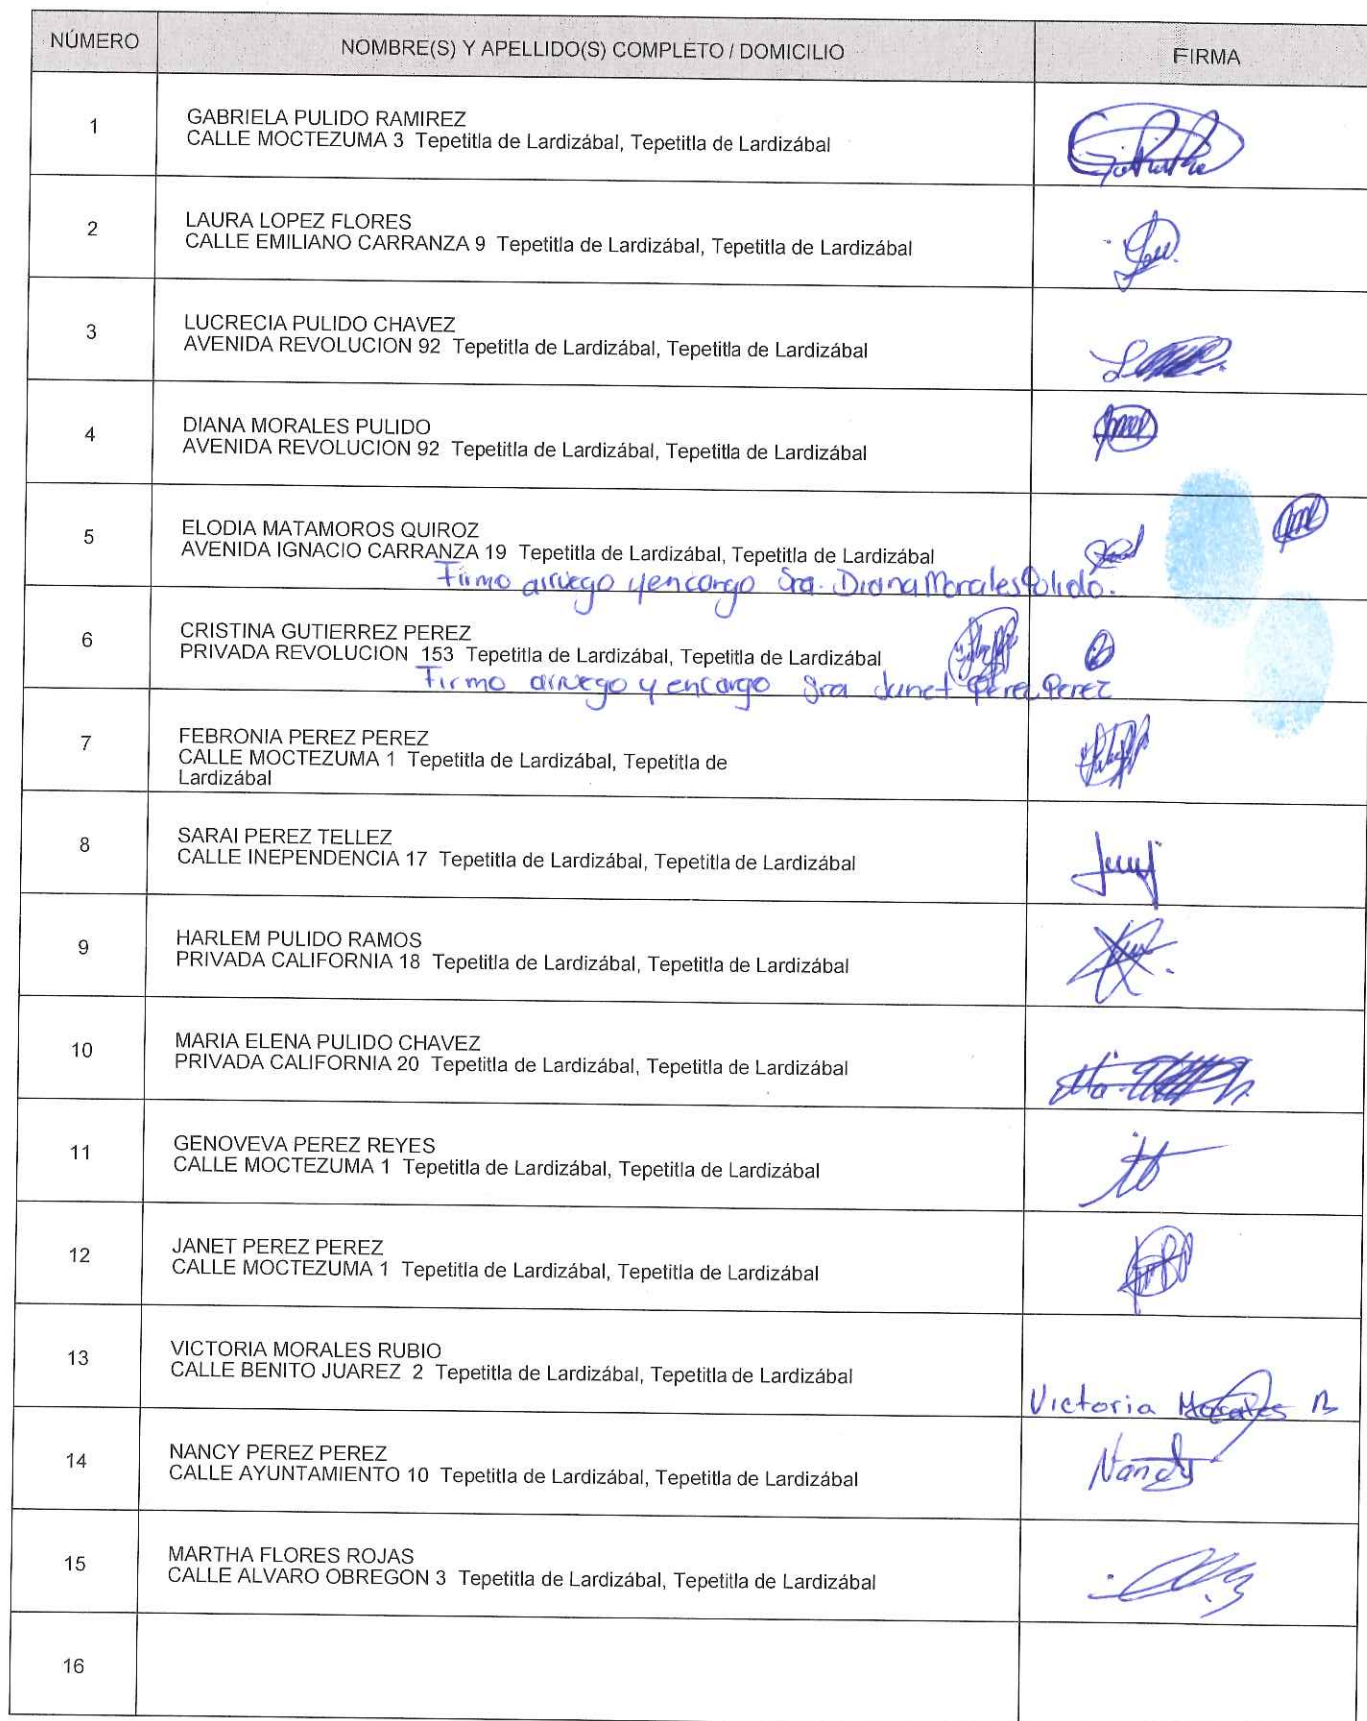 NÚMERO NOMBRE(S) Y APELLIDO(S) COMPLETO / DOMICILIO FIRMA
1 GABRIELA PULIDO RAMIREZ
CALLE MOCTEZUMA 3 Tepetitla de Lardizábal, Tepetitla de Lardizábal
2 LAURA LOPEZ FLORES
CALLE EMILIANO CARRANZA 9 Tepetitla de Lardizábal, Tepetitla de Lardizábal
3 LUCRECIA PULIDO CHAVEZ
AVENIDA REVOLUCION 92 Tepetitla de Lardizábal, Tepetitla de Lardizábal
4 DIANA MORALES PULIDO
AVENIDA REVOLUCION 92 Tepetitla de Lardizábal, Tepetitla de Lardizábal
5 ELODIA MATAMOROS QUIROZ
AVENIDA IGNACIO CARRANZA 19 Tepetitla de Lardizábal, Tepetitla de Lardizábal
Firmo arruego y encargo Sra. Diana Morales Pulido.
6 CRISTINA GUTIERREZ PEREZ
PRIVADA REVOLUCION 153 Tepetitla de Lardizábal, Tepetitla de Lardizábal
Firmo arruego y encargo Sra Janet Perez Perez
7 FEBRONIA PEREZ PEREZ
CALLE MOCTEZUMA 1 Tepetitla de Lardizábal, Tepetitla de
Lardizábal
8 SARAI PEREZ TELLEZ
CALLE INEPENDENCIA 17 Tepetitla de Lardizábal, Tepetitla de Lardizábal
9 HARLEM PULIDO RAMOS
PRIVADA CALIFORNIA 18 Tepetitla de Lardizábal, Tepetitla de Lardizábal
10 MARIA ELENA PULIDO CHAVEZ
PRIVADA CALIFORNIA 20 Tepetitla de Lardizábal, Tepetitla de Lardizábal
11 GENOVEVA PEREZ REYES
CALLE MOCTEZUMA 1 Tepetitla de Lardizábal, Tepetitla de Lardizábal
12 JANET PEREZ PEREZ
CALLE MOCTEZUMA 1 Tepetitla de Lardizábal, Tepetitla de Lardizábal
13 VICTORIA MORALES RUBIO
CALLE BENITO JUAREZ 2 Tepetitla de Lardizábal, Tepetitla de Lardizábal
Victoria Morales R
14 NANCY PEREZ PEREZ
CALLE AYUNTAMIENTO 10 Tepetitla de Lardizábal, Tepetitla de Lardizábal
Nancy
15 MARTHA FLORES ROJAS
CALLE ALVARO OBREGON 3 Tepetitla de Lardizábal, Tepetitla de Lardizábal
16